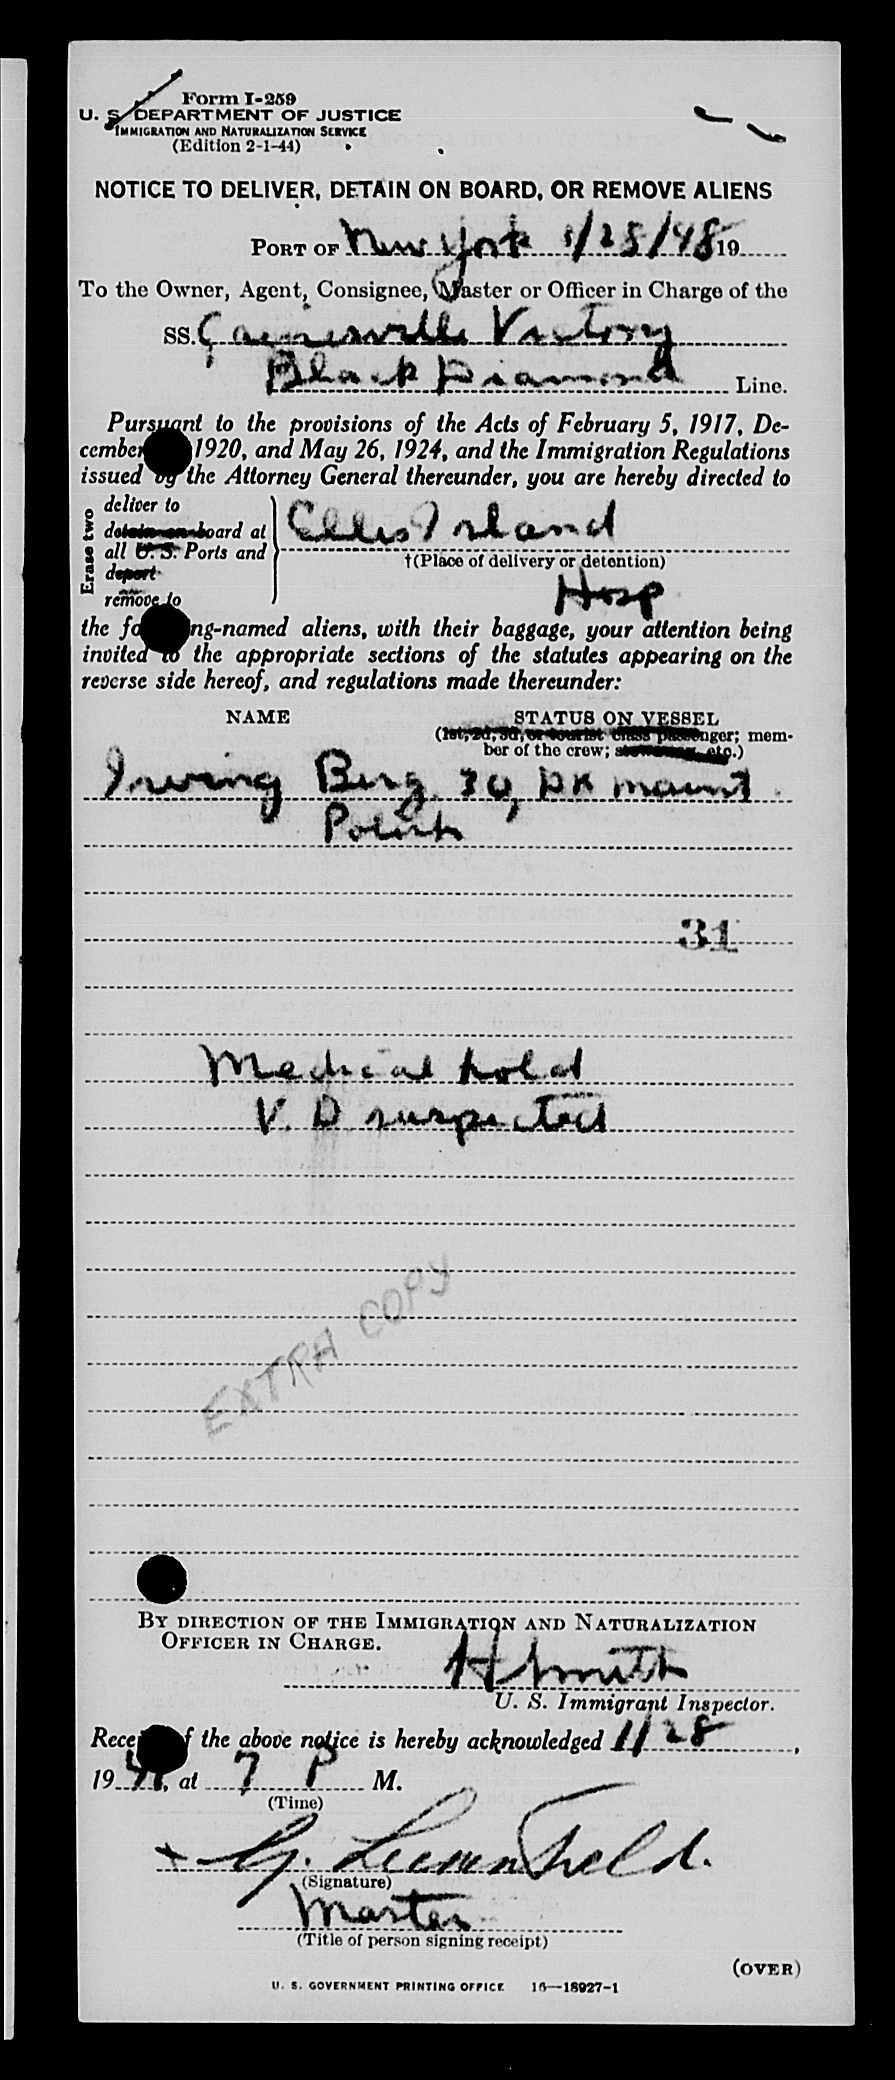 Form I-259
U. S. DEPARTMENT OF JUSTICE
IMMIGRATION AND NATURALIZATION SERVICE
(Edition 2-1-44)
NOTICE TO DELIVER, DETAIN ON BOARD, OR REMOVE ALIENS
PORT OF New York 1/28/48 19
To the Owner, Agent, Consignee, Master or Officer in Charge of the
SS. Gainesville Victory
Black Diamond Line.
Pursuant to the provisions of the Acts of February 5, 1917, De-
cember 1920, and May 26, 1924, and the Immigration Regulations
issued by the Attorney General thereunder, you are hereby directed to
Erase two
deliver to
detain on board at
all U. S. Ports and
deport
remove to
Ellis Island
†(Place of delivery or detention)
Hosp
the following-named aliens, with their baggage, your attention being
invited to the appropriate sections of the statutes appearing on the
reverse side hereof, and regulations made thereunder:
NAME STATUS ON VESSEL
(1st, 2d, 3d, or tourist class passenger; mem-
ber of the crew; stowaway, etc.)
Irving Berg 30, DK maint
Polish
31
Medical hold
V. D suspected
EXTRA COPY
BY DIRECTION OF THE IMMIGRATION AND NATURALIZATION
OFFICER IN CHARGE.
H Smith
U. S. Immigrant Inspector.
Receipt of the above notice is hereby acknowledged 1/28,
1948, at 7 P M.
(Time)
(Signature)
Master
(Title of person signing receipt)
(OVER)
U. S. GOVERNMENT PRINTING OFFICE 16—18927-1